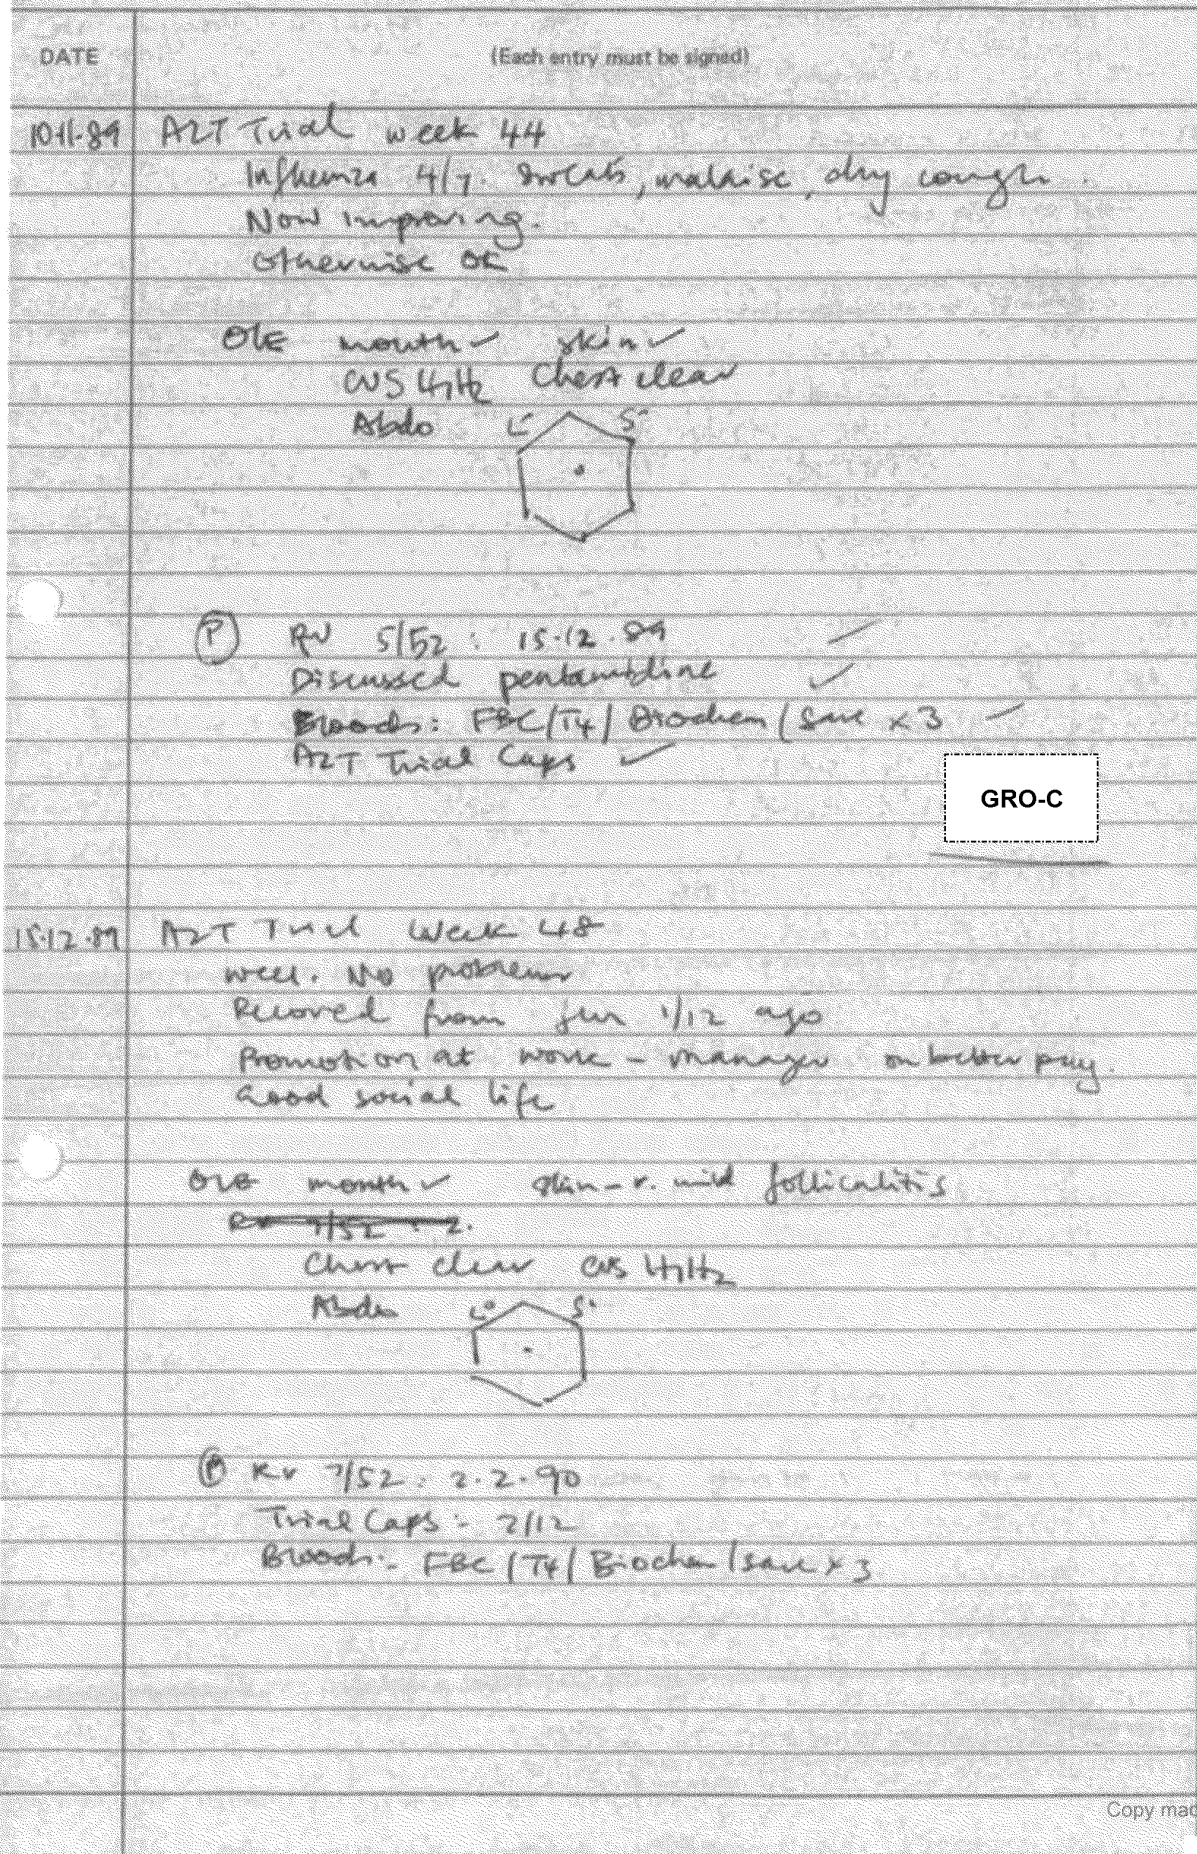 DATE (Each entry must be signed)
10·11·89 AZT Trial week 44
Influenza 4/7. Sweats, malaise, dry cough.
Now improving.
Otherwise OK
O/E mouth ✓ skin ✓
CVS H1H2 Chest clear
Abdo L° S°
(P) RV 5/52 : 15·12·89 ✓
Discussed pentamidine ✓
Bloods: FBC/T4/Biochem/Save x3 ✓
AZT Trial Caps ✓
GRO-C
15·12·89 AZT Trial Week 48
Well. No problems
Recovered from flu 1/12 ago
Promotion at work - manager on better pay.
Good social life
O/E mouth ✓ skin - v. mild folliculitis
Chest clear CVS H1H2
Abdo L° S°
(P) Rv 7/52 : 2·2·90
Trial Caps :- 2/12
Bloods :- FBC/T4/Biochem/save x3
Copy mad